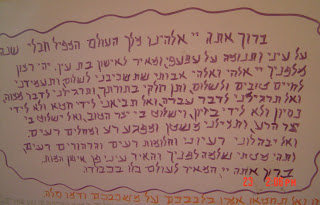 ברוך אתה יי אלהינו מלך העולם המפיל חבלי שנה
על עיני ותנומה על עפעפי, ומאיר לאישון בת עין. יהי רצון
מלפניך יי אלהי ואלהי אבותי שתשכיבני לשלום, ותעמידני
לחיים טובים ולשלום, ותן חלקי בתורתך, ותרגילני לדבר מצוה,
ואל תרגילני לדבר עברה, ואל תביאני לידי חטא ולא לידי
נסיון ולא לידי בזיון, וישלוט בי יצר הטוב, ואל ישלוט בי
יצר הרע, ותצילני משטן ומפגע רע ומחלים רעים,
ואל יבהלוני רעיוני וחלומות רעים והרהורים רעים,
ותהי מטתי שלמה לפניך והאיר עיני פן אישן המות.
ברוך אתה יי המאיר לעולם כלו בכבודו.
על משכבכם ודמו סלה